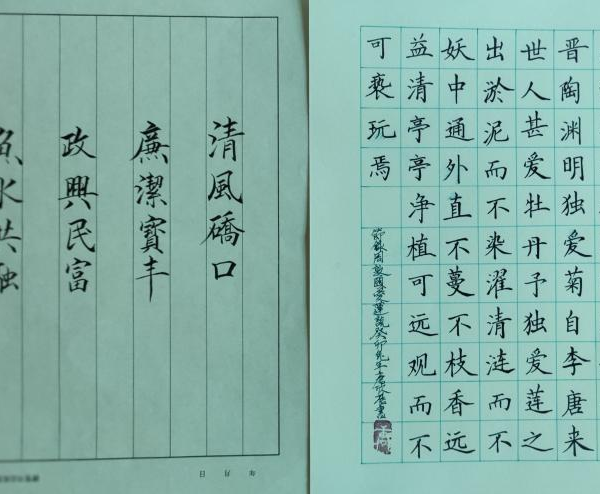 清風礄口
廉潔寶丰
政興民富
魚水共融
年 月 日
晋陶渊明独爱菊自李唐来
世人甚爱牡丹予独爱莲之
出淤泥而不染濯清涟而不
妖中通外直不蔓不枝香远
益清亭亭净植可远观而不
可亵玩焉
節錄周敦頤愛蓮說癸卯兔年